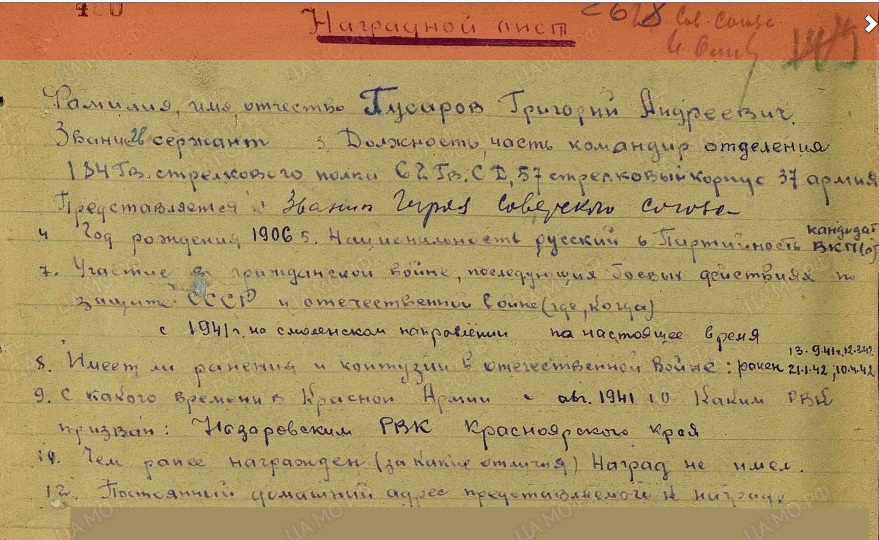 Наградной лист
Сов. союза
Фамилия, имя, отчество Гусаров Григорий Андреевич.
Звание сержант 3. Должность, часть командир отделения
184 Гв. стрелкового полка 62 Гв. СД, 57 стрелковый корпус 37 армия
Представляется к Званию Героя Советского союза
4 Год рождения 1906 5. Национальность русский 6 Партийность кандидат ВКП(б)
7. Участие в гражданской войне, последующих боевых действиях по
защите СССР и отечественной войне (где, когда)
с 1941 г. на смоленском направлении по настоящее время
13.9.41г, 12.3.42
8. Имеет ли ранения и контузии в отечественной войне: ранен 21.1.42, 10.4.42
9. С какого времени в Красной Армии с авг. 1941 10 Каким РВК
призван: Назаровским РВК Красноярского края
Чем ранее награжден (за какие отличия) Наград не имел.
12. Постоянный домашний адрес представляемого к награде